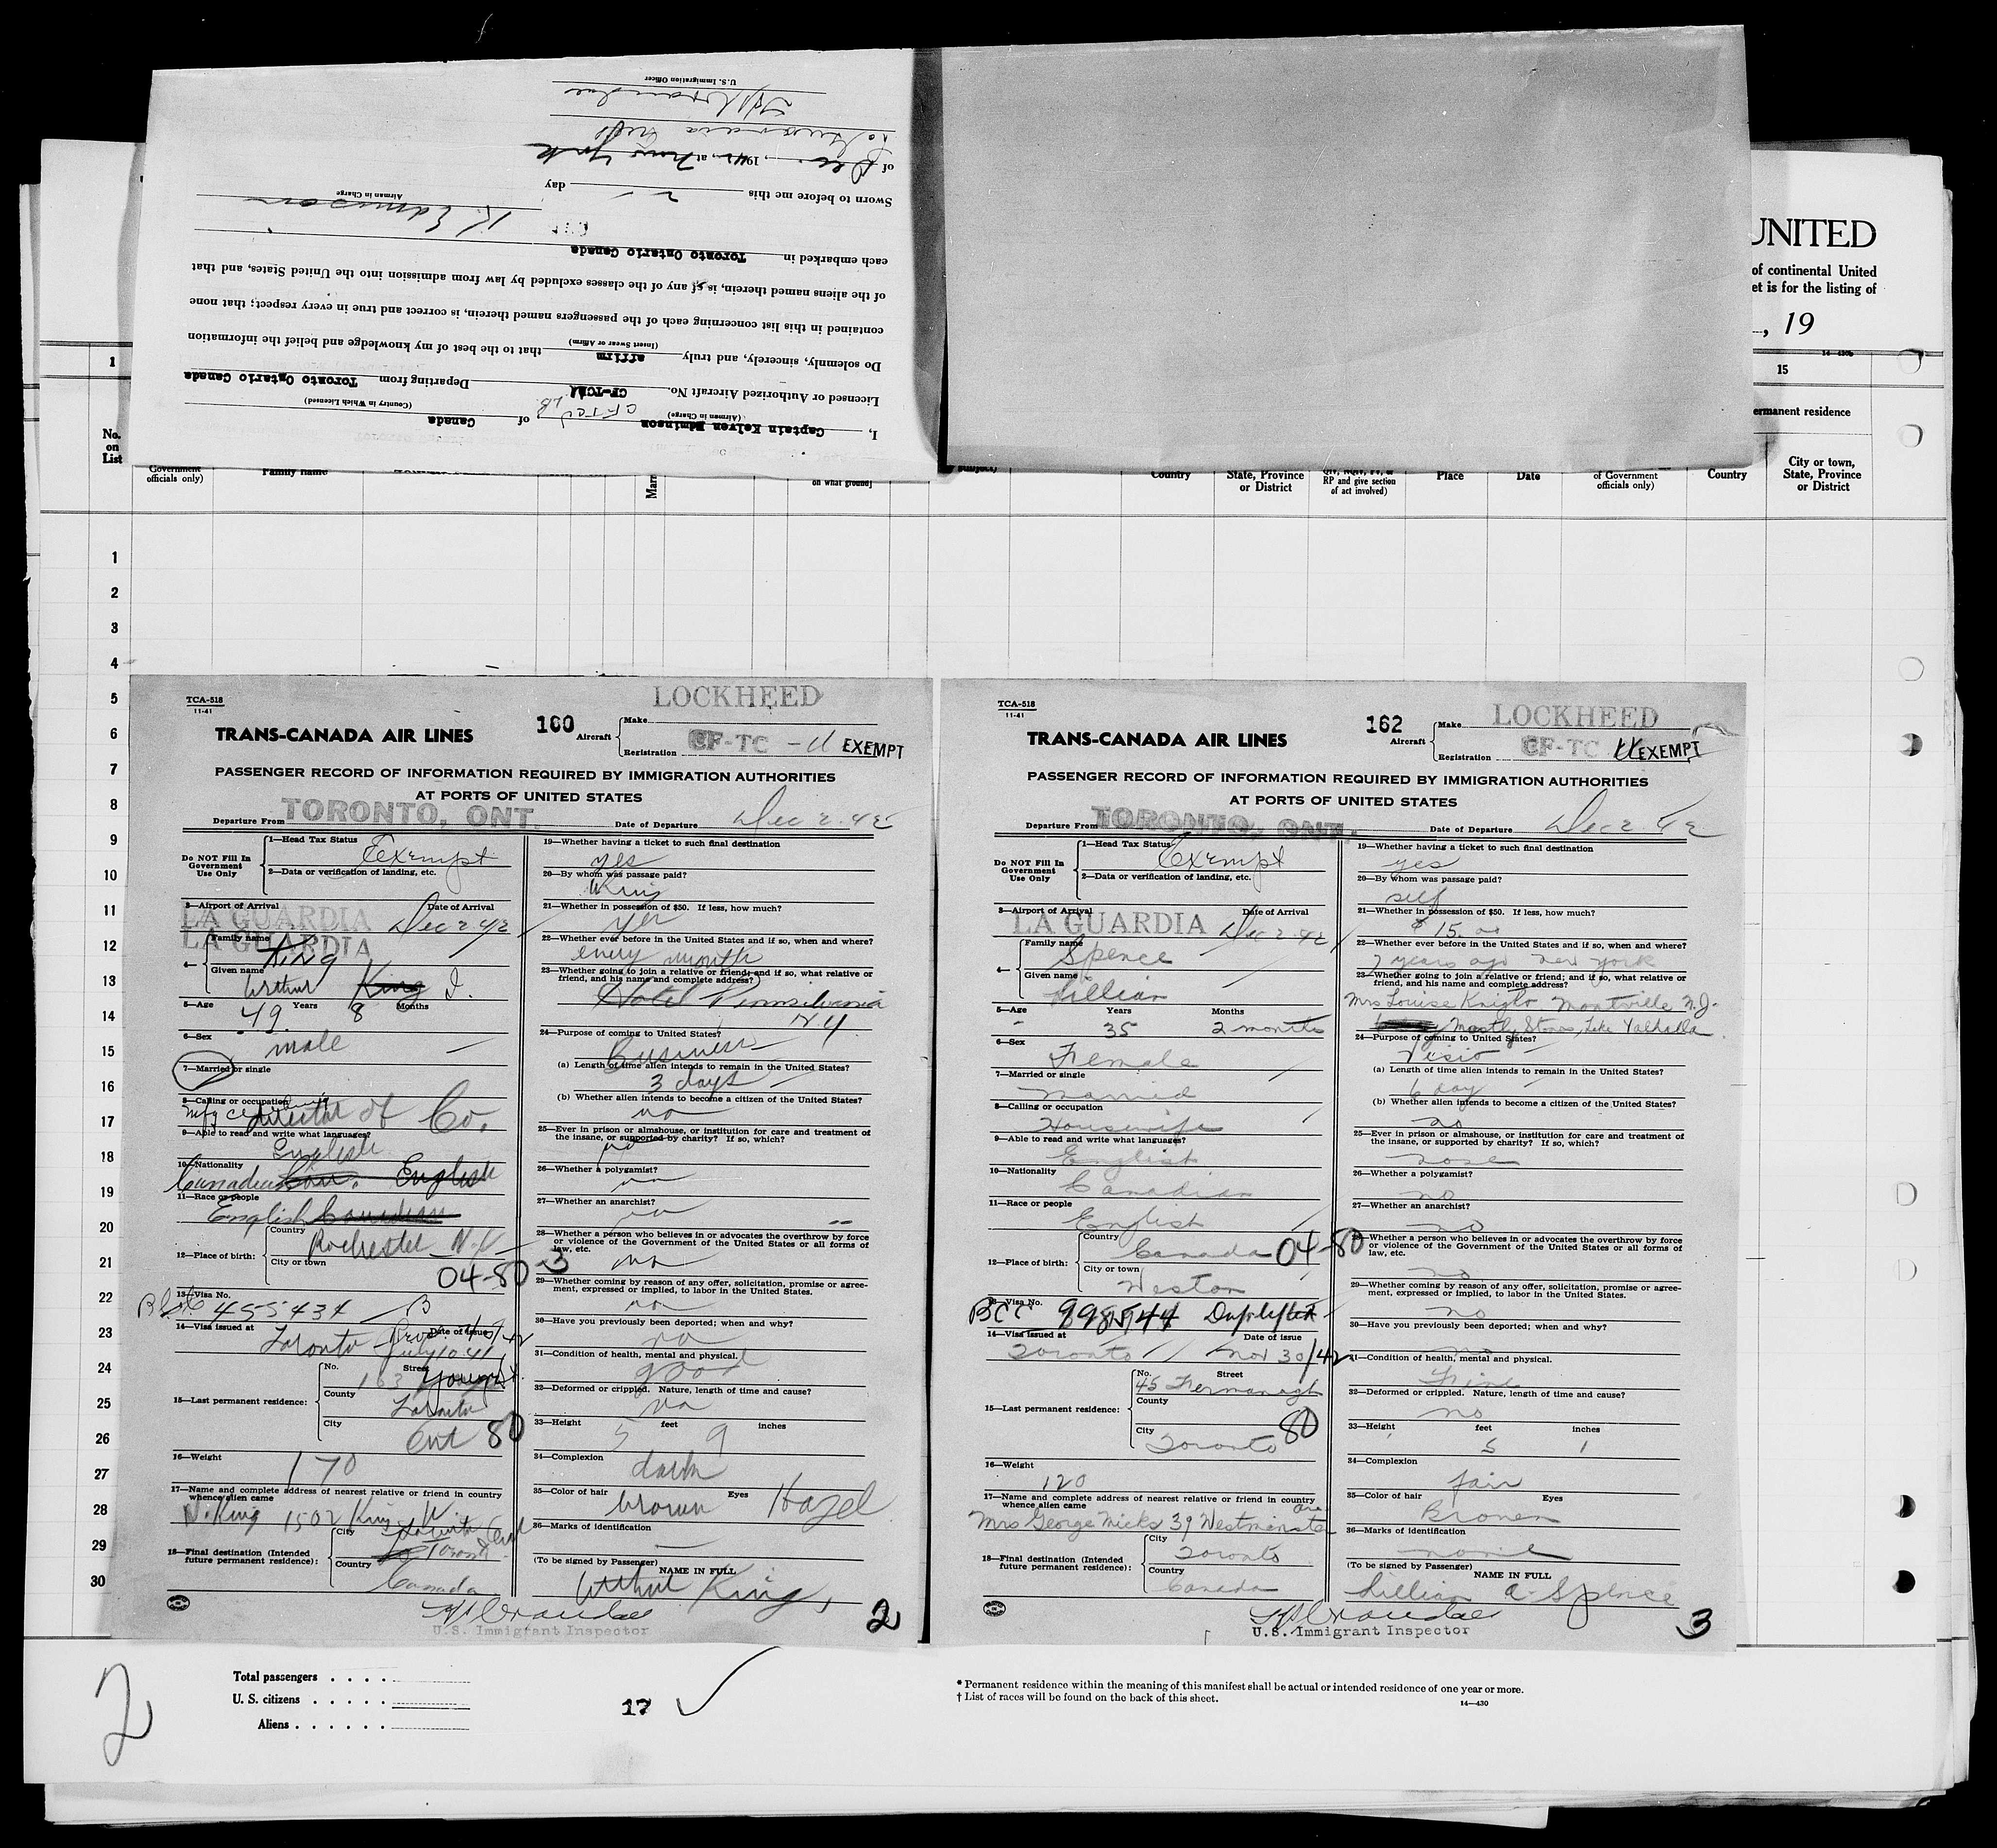 I, Captain Kelven Edminson of Canada
(Airman in Charge) (Country in Which Licensed)
Licensed or Authorized Aircraft No. CF-TC Departing from Toronto Ontario Canada
Do solemnly, sincerely, and truly affirm that to the best of my knowledge and belief the information
(Insert Swear or Affirm)
contained in this list concerning each of the passengers named therein, is correct and true in every respect; that none
of the aliens named therein, is of any of the classes excluded by law from admission into the United States, and that
each embarked in Toronto Ontario Canada
K. Edminson
Airman in Charge
Sworn to before me this 2 day
of Dec. , 1942 at New York
U.S. Immigration Officer
UNITED
of continental United
et is for the listing of
, 19
14-430b
1
15
ermanent residence
No. on List
Government officials only)
Family name
on what ground]
Country
State, Province or District
RP and give section of act involved)
Place
Date
of Government officials only)
Country
City or town, State, Province or District
1
2
3
4
5
6
7
8
9
10
11
12
13
14
15
16
17
18
19
20
21
22
23
24
25
26
27
28
29
30
TCA-518
11-41
LOCKHEED
TRANS-CANADA AIR LINES
160
Aircraft
Make
Registration CF-TC EXEMPT
PASSENGER RECORD OF INFORMATION REQUIRED BY IMMIGRATION AUTHORITIES
AT PORTS OF UNITED STATES
Departure From TORONTO, ONT. Date of Departure Dec 2. 42
Do NOT Fill In Government Use Only
1—Head Tax Status Exempt
2—Data or verification of landing, etc.
3—Airport of Arrival Date of Arrival
LA GUARDIA Dec 2 42
LA GUARDIA
4—
Family name King
Given name Arthur King I.
5—Age 49 Years 8 Months
6—Sex male
7—Married or single
8—Calling or occupation
mfg director of Co.
9—Able to read and write what languages?
English
10—Nationality
Canadian English
11—Race or people
English Canadian
12—Place of birth:
Country Rochester N.Y
City or town
04-80-3
13—Visa No.
455434 B
14—Visa issued at Date of issue
Toronto July 10 41
15—Last permanent residence:
No. Street
County Toronto
City Ont 80
16—Weight 170
17—Name and complete address of nearest relative or friend in country whence alien came
N. King 1502 King W
18—Final destination (Intended future permanent residence):
City Toronto
Country Canada
19—Whether having a ticket to such final destination
yes
20—By whom was passage paid?
King
21—Whether in possession of $50. If less, how much?
yes
22—Whether ever before in the United States and if so, when and where?
every month
23—Whether going to join a relative or friend; and if so, what relative or friend, and his name and complete address?
Hotel Pennsilvania
N Y
24—Purpose of coming to United States?
Business
(a) Length of time alien intends to remain in the United States?
3 days
(b) Whether alien intends to become a citizen of the United States?
no
25—Ever in prison or almshouse, or institution for care and treatment of the insane, or supported by charity? If so, which?
no
26—Whether a polygamist?
no
27—Whether an anarchist?
no
28—Whether a person who believes in or advocates the overthrow by force or violence of the Government of the United States or all forms of law, etc.
no
29—Whether coming by reason of any offer, solicitation, promise or agreement, expressed or implied, to labor in the United States.
no
30—Have you previously been deported; when and why?
no
31—Condition of health, mental and physical.
good
32—Deformed or crippled. Nature, length of time and cause?
no
33—Height 5 feet 9 inches
34—Complexion
dark
35—Color of hair brown Eyes Hazel
36—Marks of identification
(To be signed by Passenger) NAME IN FULL
Arthur King,
U.S. Immigrant Inspector
2
TCA-518
11-41
LOCKHEED
TRANS-CANADA AIR LINES
162
Aircraft
Make
Registration CF-TC EXEMPT
PASSENGER RECORD OF INFORMATION REQUIRED BY IMMIGRATION AUTHORITIES
AT PORTS OF UNITED STATES
Departure From TORONTO, ONT. Date of Departure Dec 2 42
Do NOT Fill In Government Use Only
1—Head Tax Status Exempt
2—Data or verification of landing, etc.
3—Airport of Arrival Date of Arrival
LA GUARDIA Dec 2 42
4—
Family name Spence
Given name Lillian
5—Age 35 Years 2 months Months
6—Sex Female
7—Married or single
Married
8—Calling or occupation
Housewife
9—Able to read and write what languages?
English
10—Nationality
Canadian
11—Race or people
English
12—Place of birth:
Country Canada 04-80
City or town Weston
13—Visa No.
BCC 998544 Duplicate
14—Visa issued at Date of issue
Toronto Nov 30/42
15—Last permanent residence:
No. Street
45 Fermanagh
County
City Toronto 80
16—Weight 120
17—Name and complete address of nearest relative or friend in country whence alien came
Mrs George Micks 39 Westminster Ave
18—Final destination (Intended future permanent residence):
City Toronto
Country Canada
19—Whether having a ticket to such final destination
yes
20—By whom was passage paid?
self
21—Whether in possession of $50. If less, how much?
$ 15.00
22—Whether ever before in the United States and if so, when and where?
7 years ago New York
23—Whether going to join a relative or friend; and if so, what relative or friend, and his name and complete address?
Mrs Louise Knight Montville N.J.
Mostly Stones, Lake Valhalla
24—Purpose of coming to United States?
Visit
(a) Length of time alien intends to remain in the United States?
6 day
(b) Whether alien intends to become a citizen of the United States?
no
25—Ever in prison or almshouse, or institution for care and treatment of the insane, or supported by charity? If so, which?
none
26—Whether a polygamist?
no
27—Whether an anarchist?
no
28—Whether a person who believes in or advocates the overthrow by force or violence of the Government of the United States or all forms of law, etc.
no
29—Whether coming by reason of any offer, solicitation, promise or agreement, expressed or implied, to labor in the United States.
no
30—Have you previously been deported; when and why?
no
31—Condition of health, mental and physical.
Fine
32—Deformed or crippled. Nature, length of time and cause?
no
33—Height 5 feet 1 inches
34—Complexion
fair
35—Color of hair Eyes
Brown
36—Marks of identification
none
(To be signed by Passenger) NAME IN FULL
Lillian A. Spence
U.S. Immigrant Inspector
3
2
Total passengers . . . .
U. S. citizens . . . . .
Aliens . . . . . .
17
* Permanent residence within the meaning of this manifest shall be actual or intended residence of one year or more.
† List of races will be found on the back of this sheet.
14—430